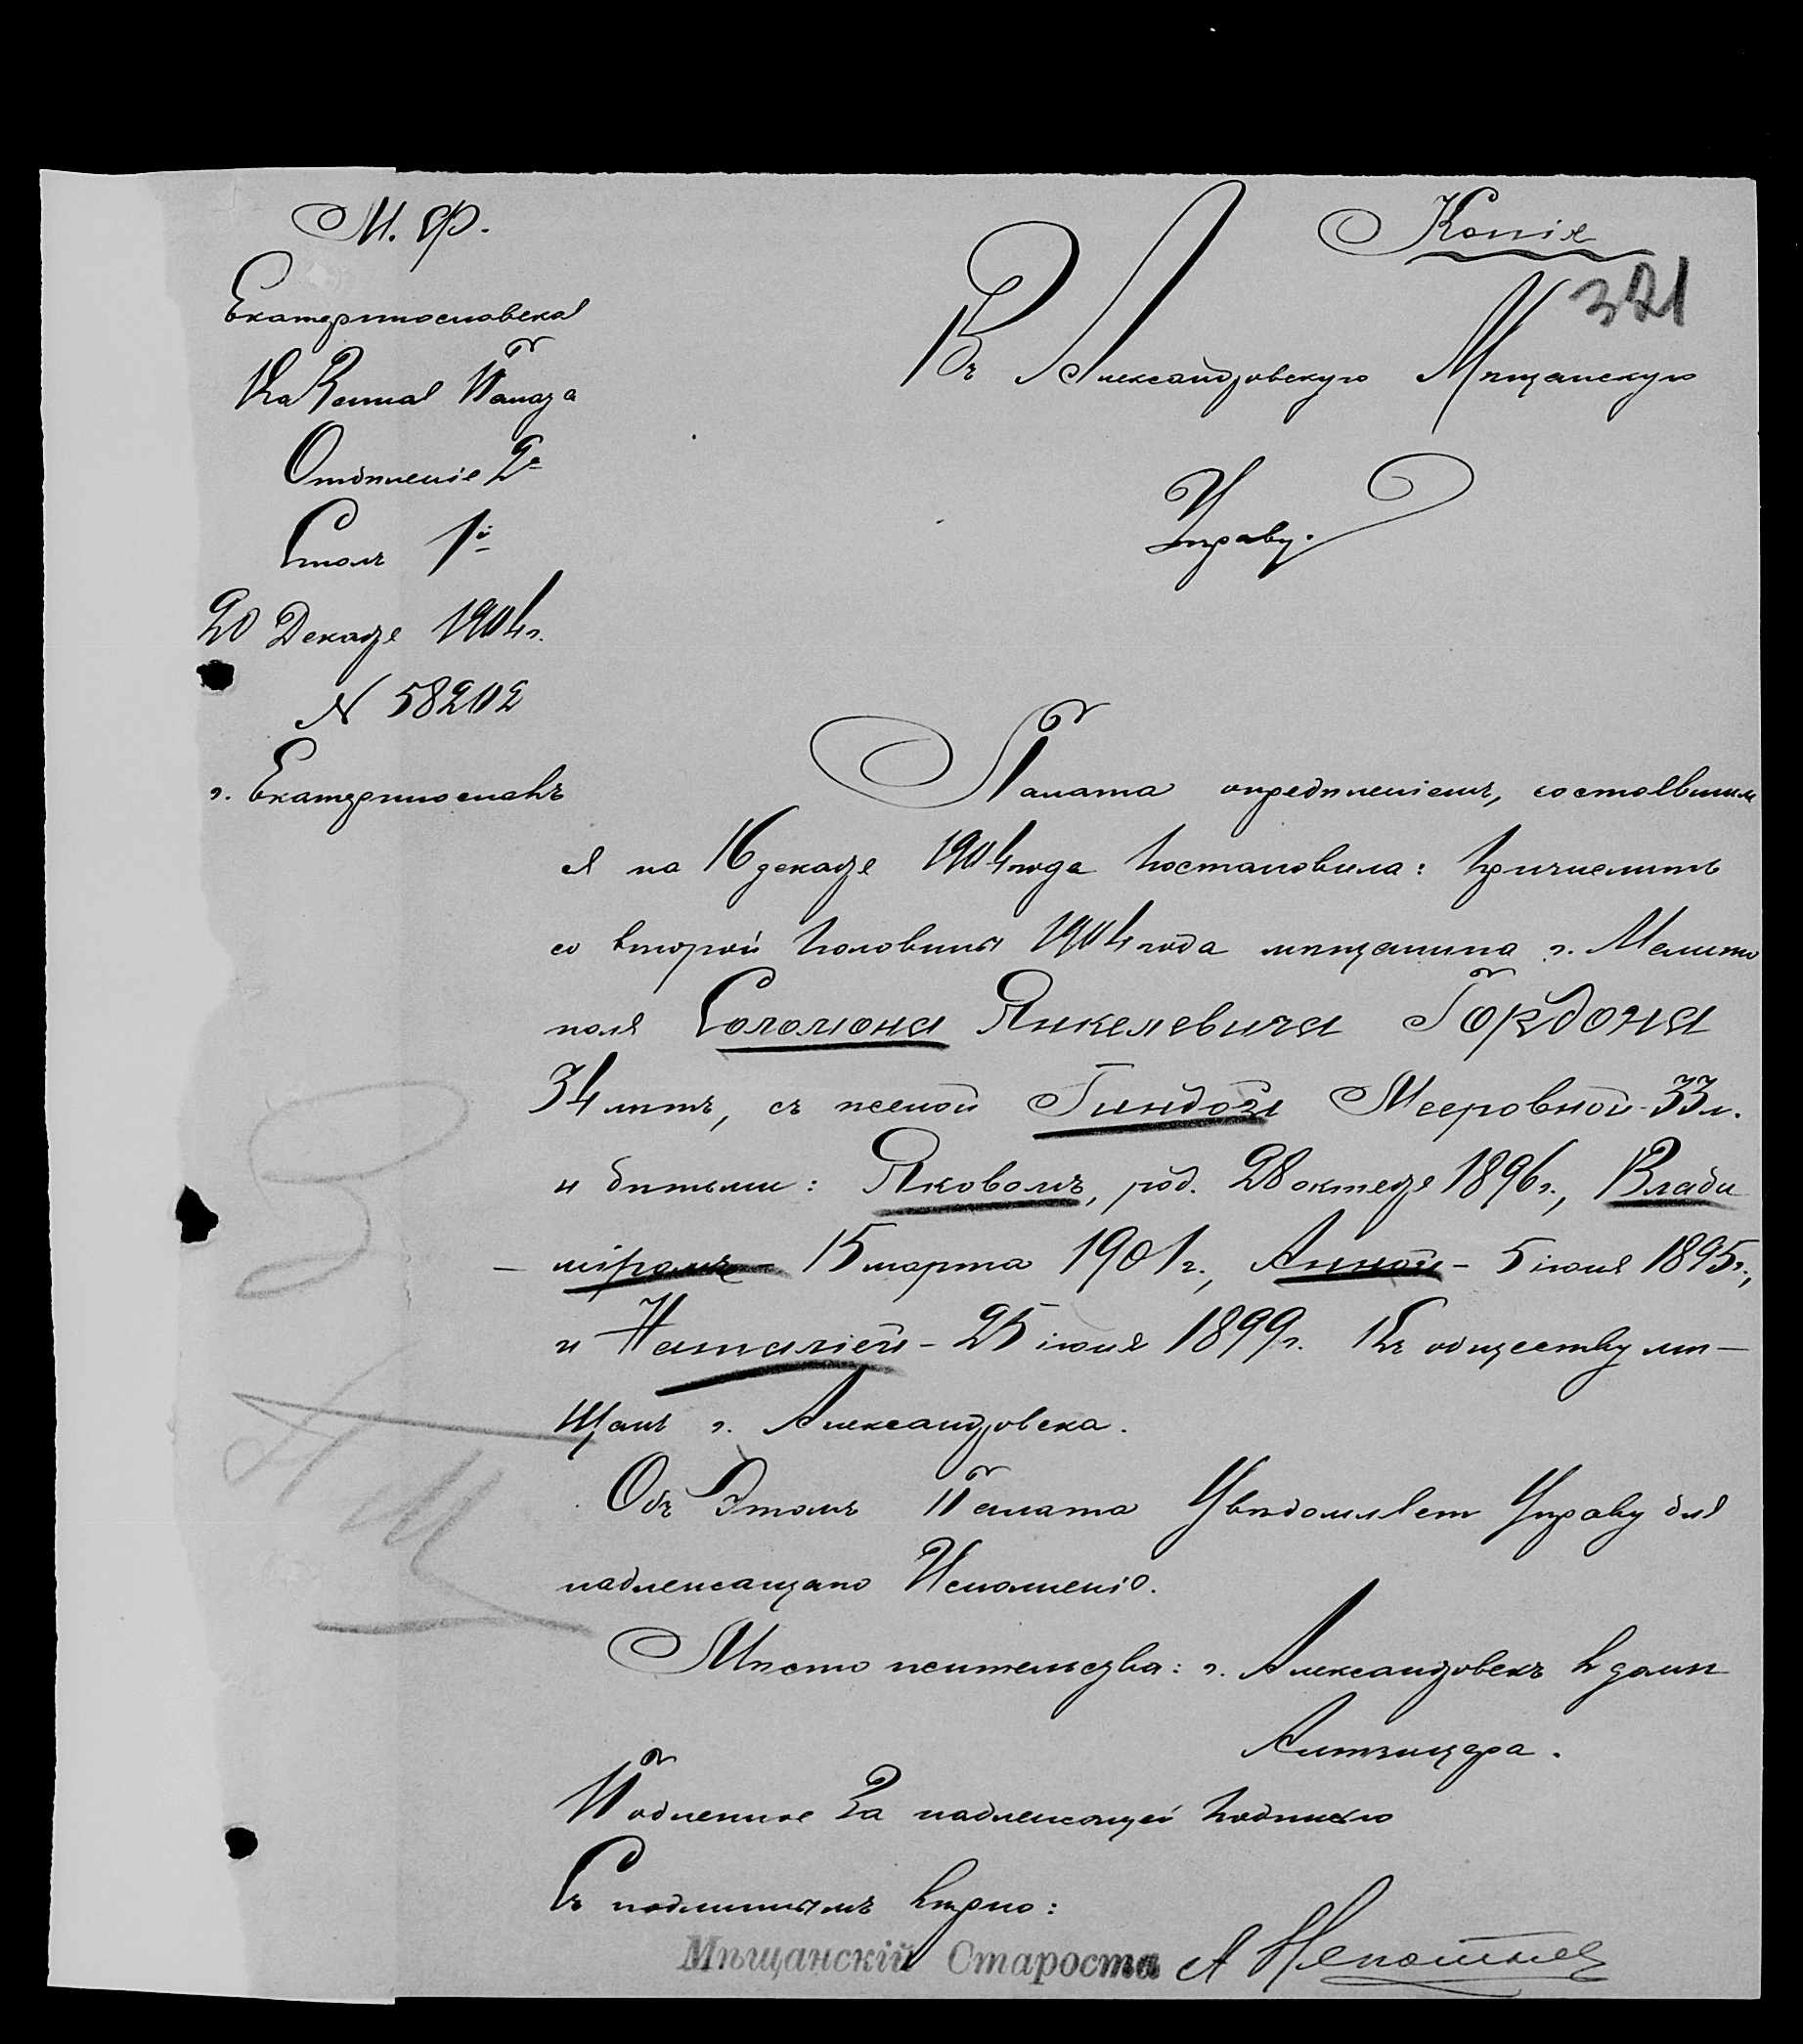 Копія
321
М. Ф.
Екатеринославская
Казенная Палата
Отдѣленіе 2е
Столъ 1й
20 Декабря 1904 г.
N 58202
г. Екатеринославъ
Въ Александровскую Мѣщанскую
Управу.
Палата опредѣленіемъ, состоявшим
ся на 16 декабря 1904 года постановила: причислить
со второй половины 1904 года мѣщанина г. Мелито
поля Соломона Янкелевича Гордона
34 лѣтъ, съ женой Гиндой Мееровной - 33 л.
и дѣтьми: Яковомъ, род. 28 октября 1896 г., Влади
- міромъ - 15 марта 1901 г., Анной - 5 іюня 1895 г.,
и Наталіей - 25 іюня 1899 г. Къ обществу мѣ-
щанъ г. Александровска.
Объ Этомъ Палата Увѣдомляетъ Управу для
надлежащаго Исполненія.
Мѣсто жительства: г. Александровскъ въ домѣ
Подленное За надлежащей подписью
Съ подлиннымъ вѣрно:
Мѣщанскій Староста А